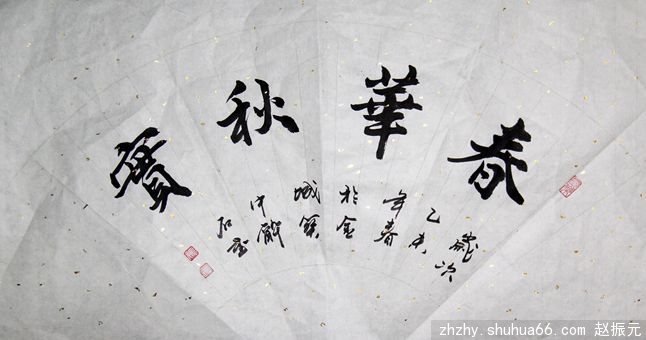 春華秋實
歲次
乙未
年春
於金
城
中
石
zhzhy.shuhua66.com 赵振元